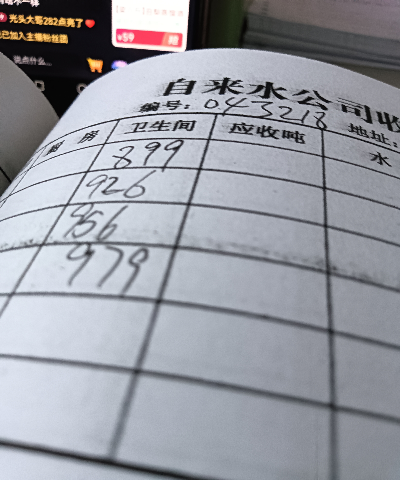 光头大哥282点亮了
已加入主播粉丝团
说点什么...
¥59 抢
自来水公司收
编号: 043218 地址:
厨房 卫生间 应收吨 水
899
926
956
979